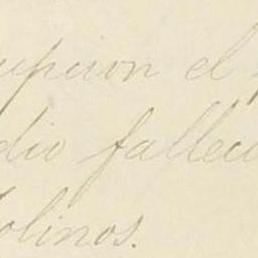 upcion el
dio fallec
olinos.